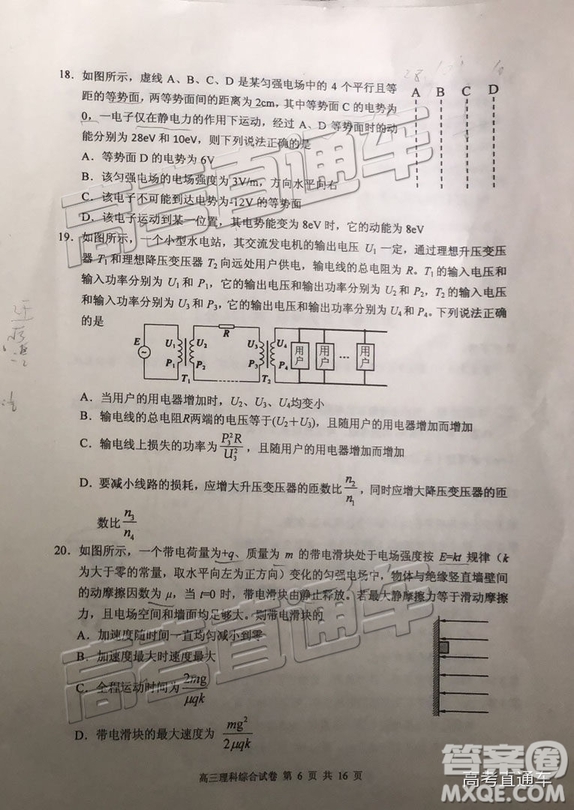 18. 如图所示，虚线 A、B、C、D 是某匀强电场中的 4 个平行且等
距的等势面，两等势面间的距离为2cm，其中等势面 C 的电势为
0，一电子仅在静电力的作用下运动，经过 A、D 等势面时的动
能分别为 28eV 和 10eV，则下列说法正确的是
A．等势面 D 的电势为 6V
B．该匀强电场的电场强度为 3V/m，方向水平向右
C．该电子不可能到达电势为-12V 的等势面
D．该电子运动到某一位置，其电势能变为 8eV 时，它的动能为 8eV
A B C D
19. 如图所示，一个小型水电站，其交流发电机的输出电压 U₁ 一定，通过理想升压变压
器 T₁ 和理想降压变压器 T₂ 向远处用户供电，输电线的总电阻为 R。T₁ 的输入电压和
输入功率分别为 U₁ 和 P₁，它的输出电压和输出功率分别为 U₂ 和 P₂，T₂ 的输入电压
和输入功率分别为 U₃ 和 P₃，它的输出电压和输出功率分别为 U₄ 和 P₄。下列说法正确
的是
E U₁ P₁ T₁ U₂ P₂ R U₃ P₃ T₂ U₄ P₄ 用户 用户 … 用户
A．当用户的用电器增加时，U₂、U₃、U₄均变小
B．输电线的总电阻R两端的电压等于(U₂＋U₃)，且随用户的用电器增加而增加
C．输电线上损失的功率为 P₃²R/U₃²，且随用户的用电器增加而增加
D．要减小线路的损耗，应增大升压变压器的匝数比 n₂/n₁，同时应增大降压变压器的匝
数比 n₃/n₄
20. 如图所示，一个带电荷量为+q、质量为 m 的带电滑块处于电场强度按 E=kt 规律（k
为大于零的常量，取水平向左为正方向）变化的匀强电场中，物体与绝缘竖直墙壁间
的动摩擦因数为 μ，当 t=0 时，带电滑块由静止释放。若最大静摩擦力等于滑动摩擦
力，且电场空间和墙面均足够大。则带电滑块的
A．加速度随时间一直均匀减小到零
B．加速度最大时速度最大
C．全程运动时间为 2mg/μqk
D．带电滑块的最大速度为 mg²/2μqk
高三理科综合试卷 第 6 页 共 16 页
高考直通车
高考直通车
答案圈
高考直通车